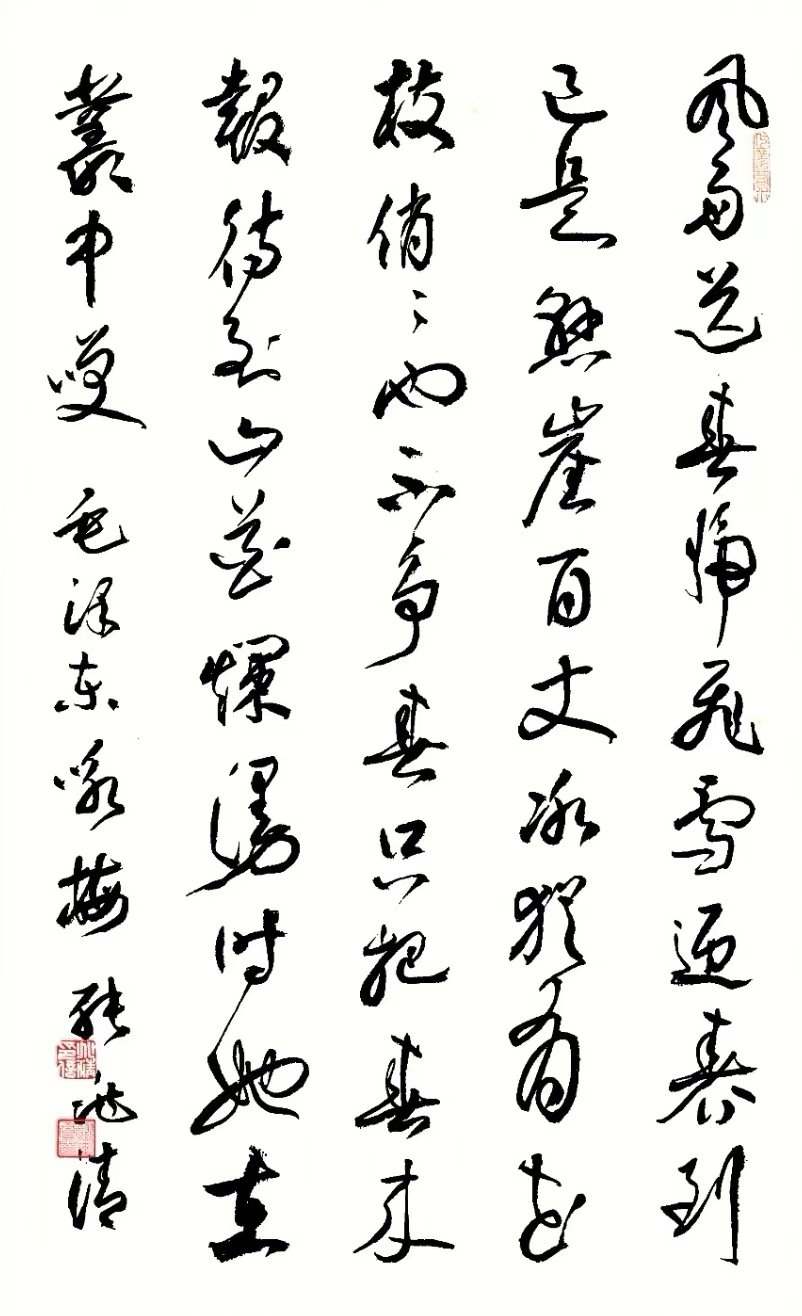 风雨送春归飞雪迎春到
已是悬崖百丈冰犹有花
枝俏〻也不争春只把春来
報待到山花爛漫时她在
叢中咲 毛泽东咏梅 清